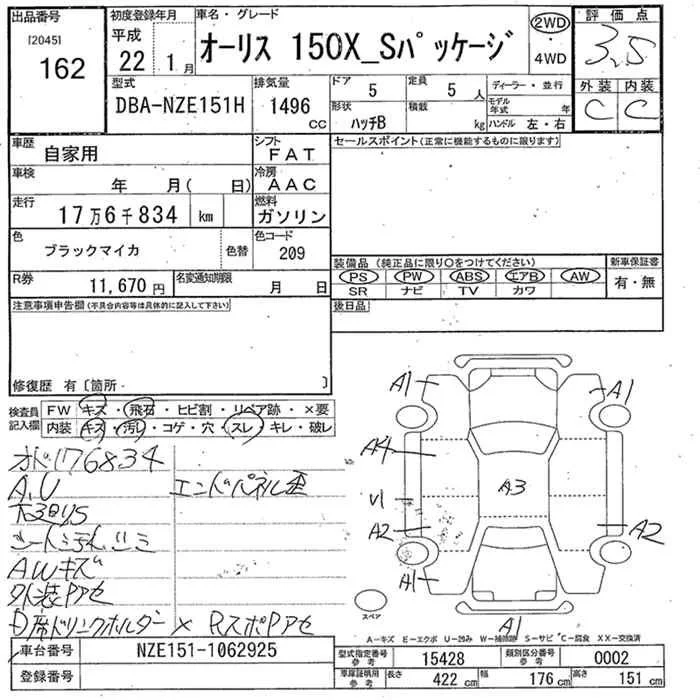 出品番号
[2045]
162
初度登録年月
平成
22 1月
車名・グレード
オーリス 150X_Sパッケージ
2WD
4WD
評価点
3.5
外装 内装
C C
型式
DBA-NZE151H
排気量
1496
cc
ドア
5
定員
5人
形状
ハッチB
積載
kg
ディーラー・並行
モデル年式 年
ハンドル 左・右
車歴
自家用
シフト
FAT
車検
年 月( 日)
冷房
AAC
走行
17万6千834 km
燃料
ガソリン
色
ブラックマイカ
色替
色コード
209
R券
11,670円
名変通知期限
月 日
セールスポイント(正常に機能するものに限ります)
装備品(純正品に限り○をつけてください)
PS PW ABS エアB AW
SR ナビ TV カワ
新車保証書
有・無
後日品
注意事項申告欄(不具合内容等は具体的に記入して下さい)
修復歴 有[箇所・ ]
検査員記入欄
FW キズ・飛石・ヒビ割・リペア跡・×要
内装 キズ・汚レ・コゲ・穴・スレ・キレ・破レ
オド176834
A,U
エンドパネル歪
AWキズ
外装Pアセ
D席ドリンクホルダー× RスポPアセ
A1 A1
A4
A3
U1
A2 A2
A1
A1
スペア
A−キズ E−エクボ U−凹み W−補修跡 S−サビ C−腐食 XX−交換済
車台番号
NZE151-1062925
登録番号
型式指定番号 参考
15428
類別区分番号 参考
0002
車庫証明用 参考
長さ 422 cm 幅 176 cm 高さ 151 cm